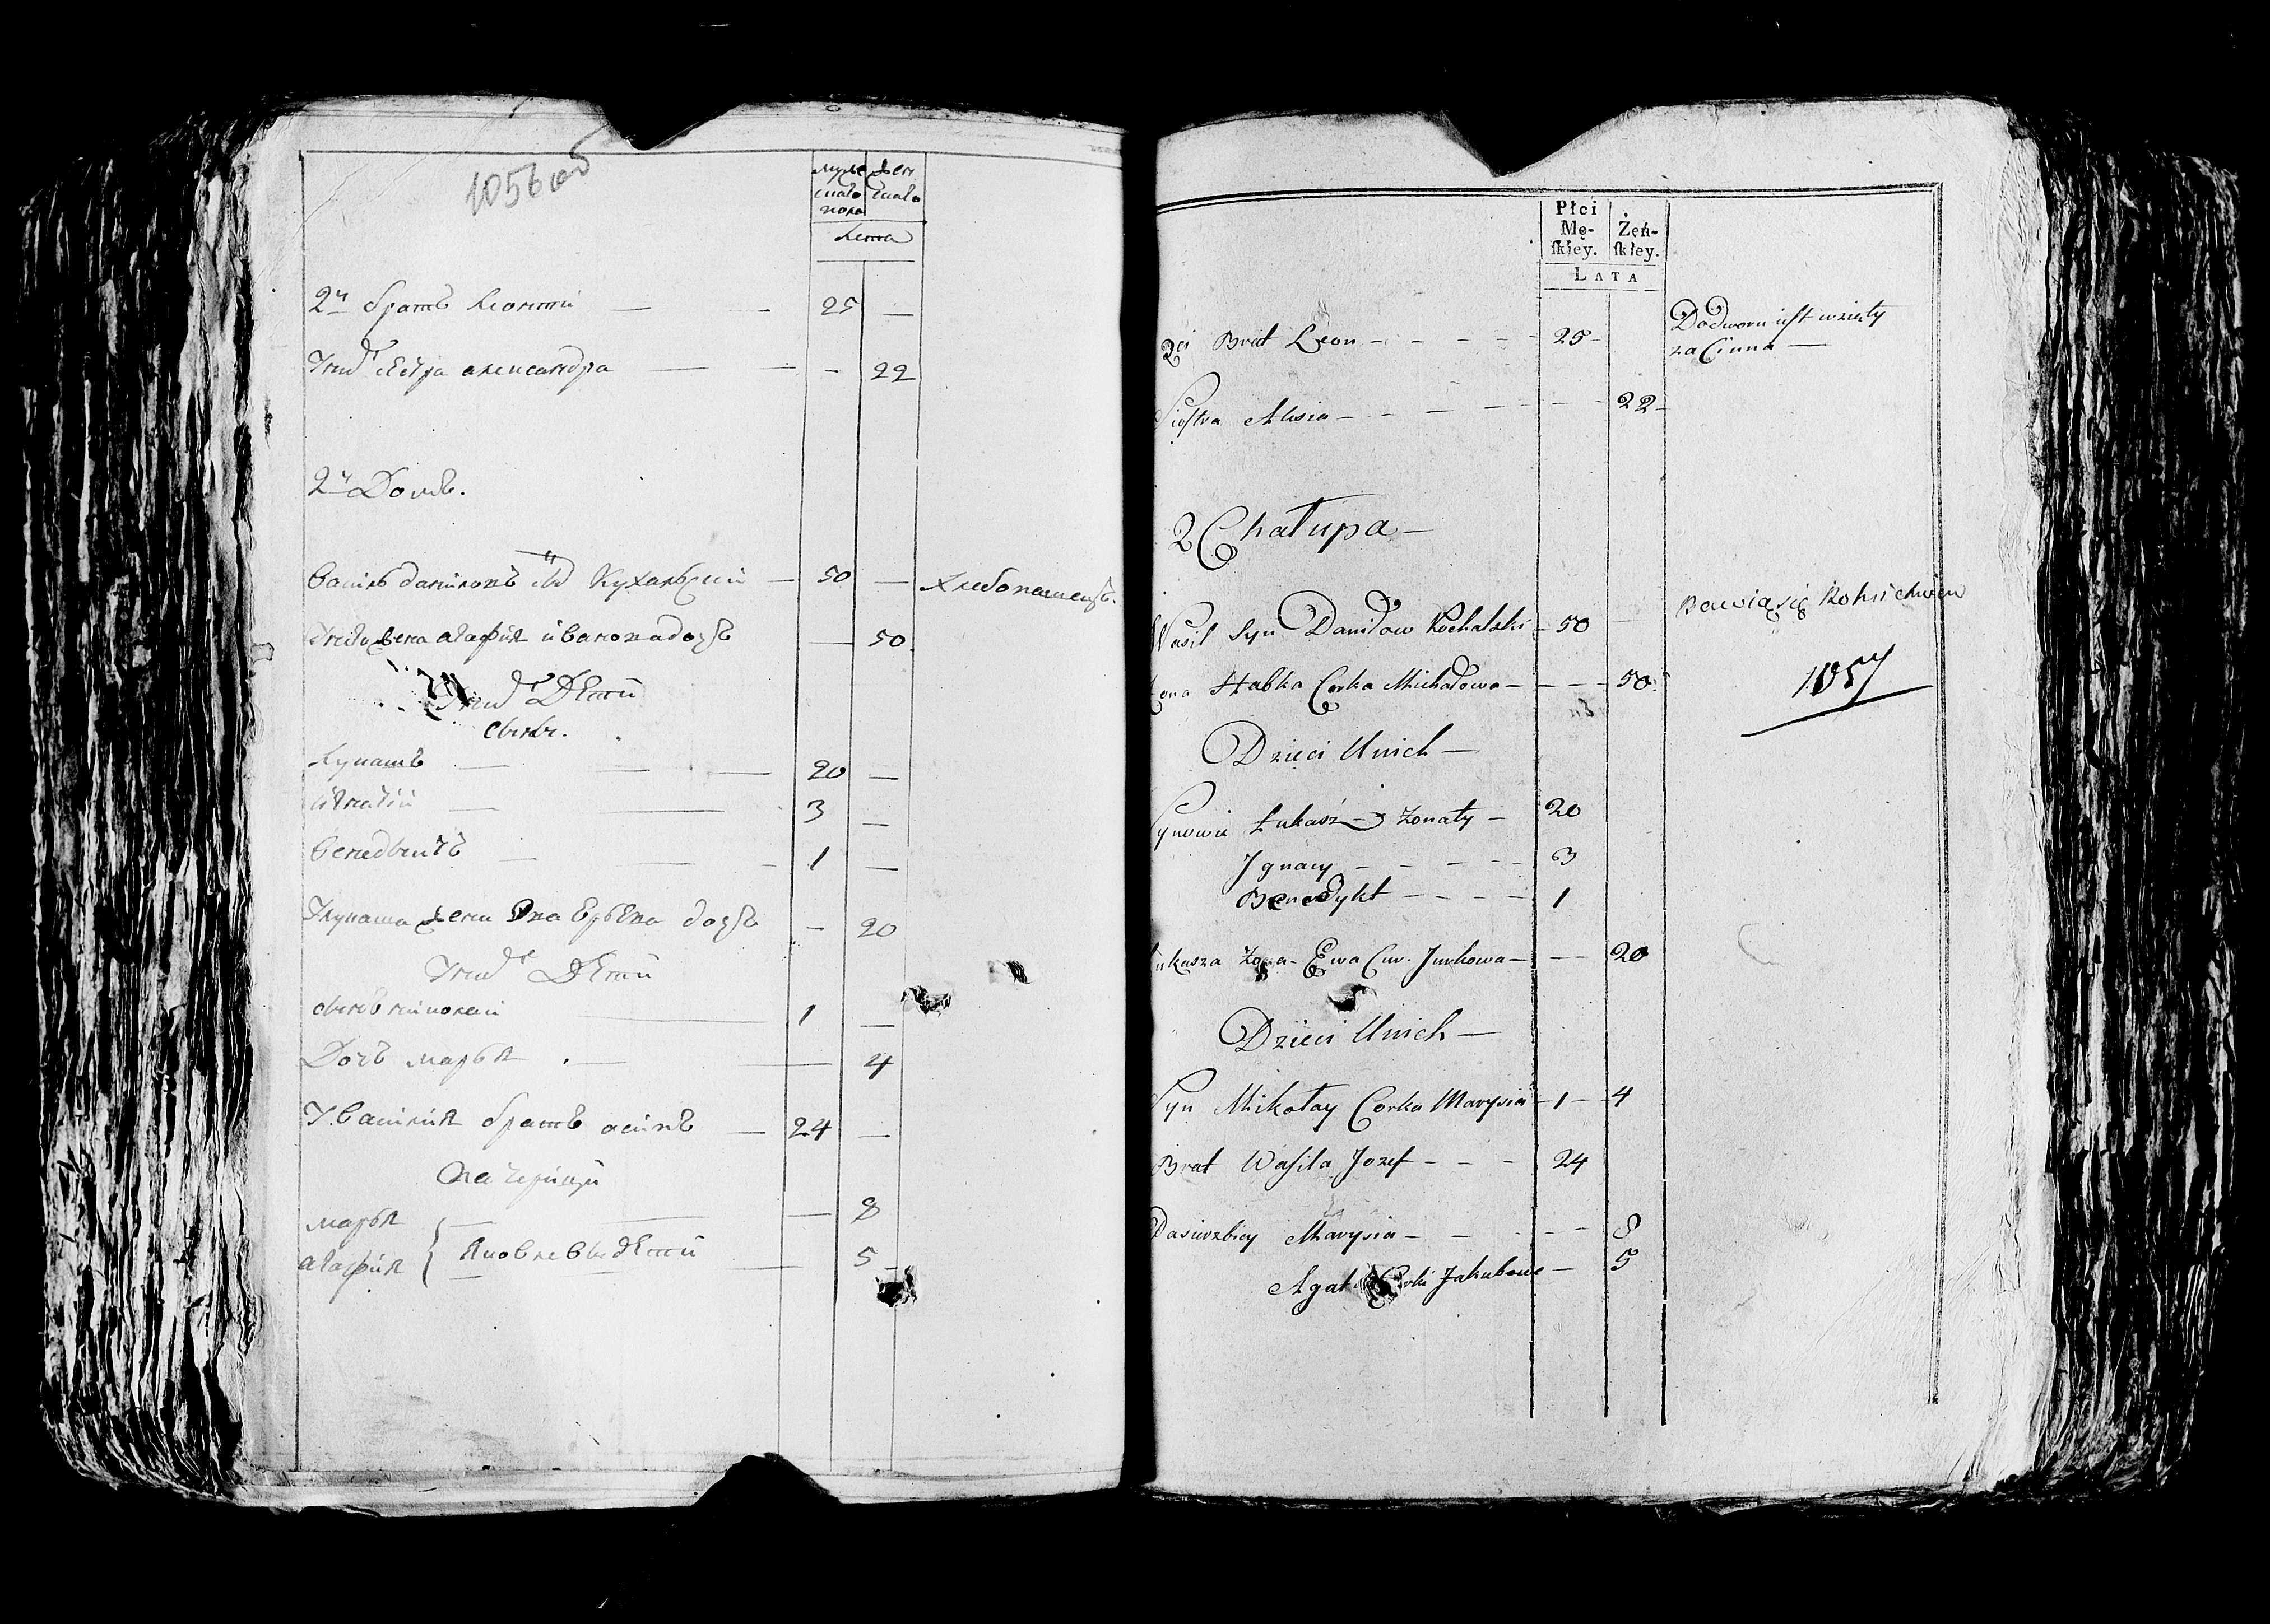 1056 об
муже жен
скаго скаго
пола
Лета
2й братъ Леонтій — — 25 —
Александра — — — 22
2й Домъ.
Василь даниловъ Кухальскій — 50 — Хлебопашецъ.
жена агафия иванова дочь — 50
Дети
сыны.
Лукашъ — — — 20 —
Игнатій — — 3 —
Бенедыктъ — — — 1 —
У лукаша жена Ева дочь — 20
Дети
сынъ николай — 1 —
Дочь марья — — 4
У василия братъ осипъ — 24 —
Пасербицы
марья — — — 8
агафия Яковлевы дети — 5
Płci
Mę- Żeń-
ſkiey. ſkiey.
LATA
2gi Brat Leon - - - - - 25 - Do dworu ieſt wzięty
za Ci
Sioſtra Alusia - - - - - - 22 -
2 Chałupa —
Wasil Syn Daniłow Kochalski - 50 Bawią się Rolnictwem
Żona Habka Corka Michałowa — - - - 50
1057
Dzieci Unich —
Synowie Łukasz — Żonaty — 20
Jgnacy - - - - - 3
Benedykt - - - - 1
Łukasza Żona - Ewa Cur. Jurkowa — - - 20
Dzieci Unich —
Syn Mikołay Corka Marysia - 1 - 4
Brat Waſila Jozef - - - 24
Pasierzbicy Marysia - - - - - 8
Agata Corki Jakubowe — 5